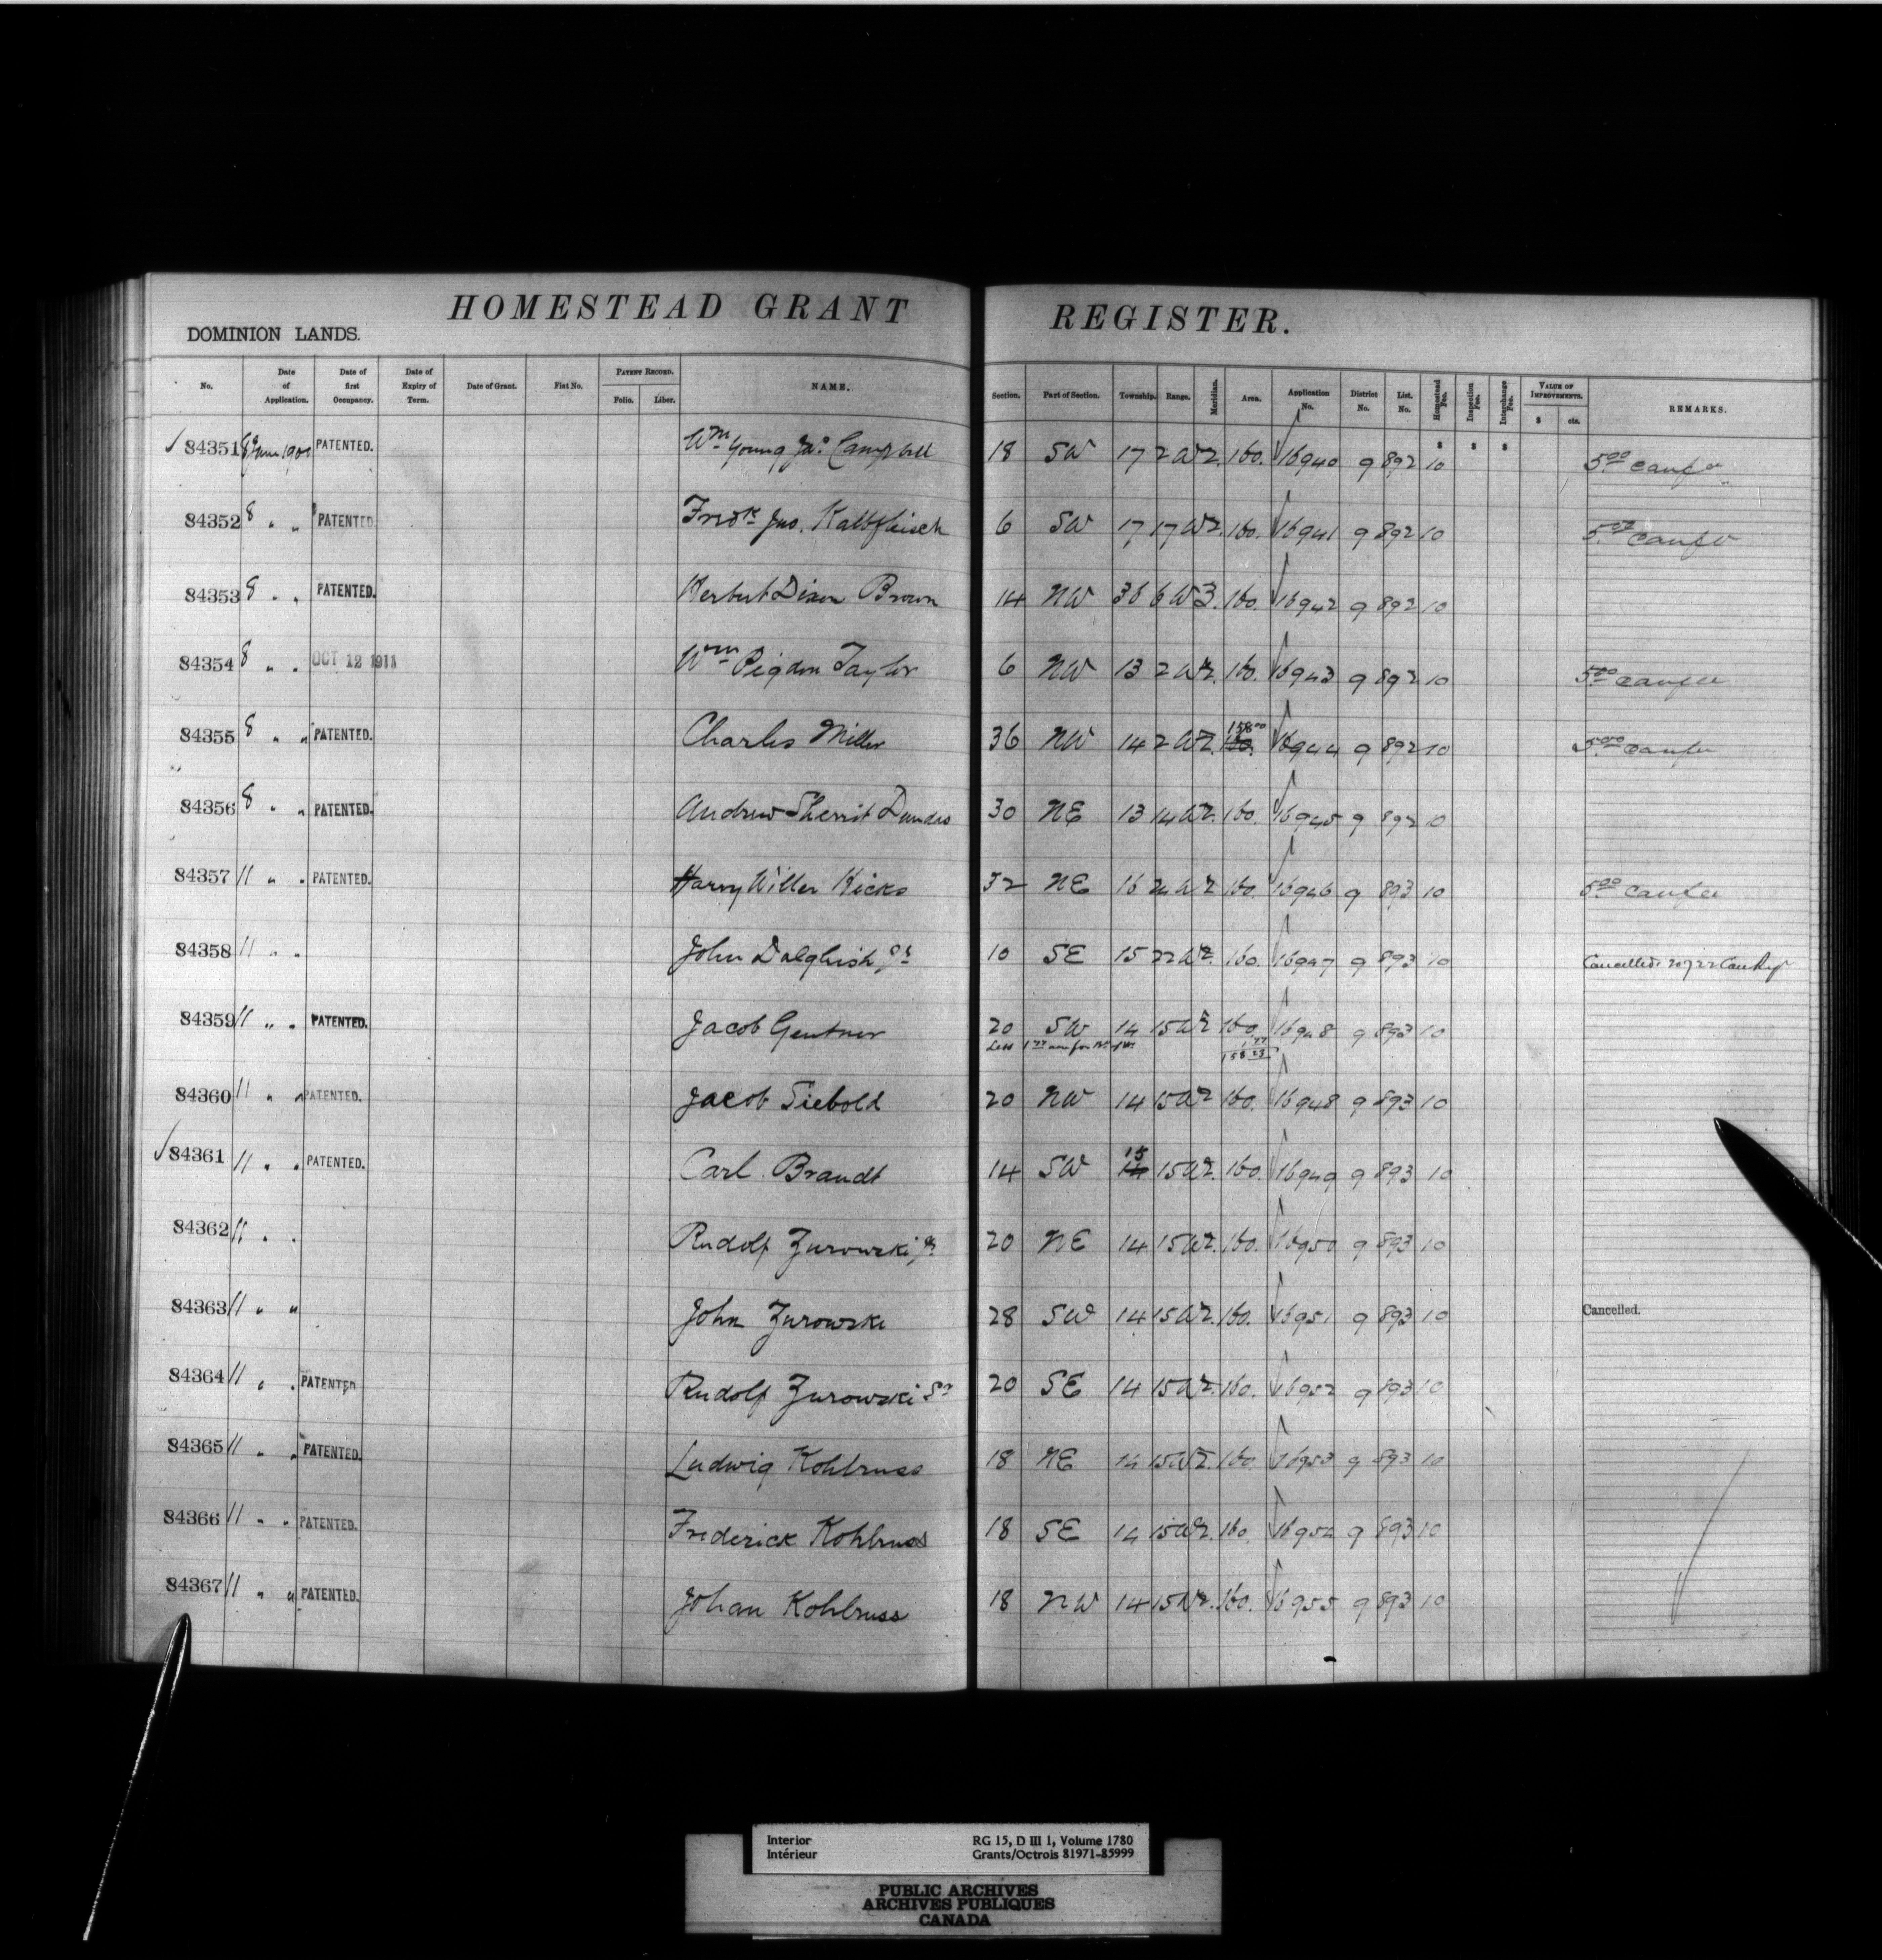 HOMESTEAD GRANT REGISTER.
DOMINION LANDS.
No. Date of Application. Date of first Occupancy. Date of Expiry of Term. Date of Grant. Fiat No. PATENT RECORD. Folio. Liber. NAME. Section. Part of Section. Township. Range. Meridian. Area. Application No. District No. List. No. Homestead Fee. Inspection Fee. Interchange Fee. VALUE OF IMPROVEMENTS. $ cts. REMARKS.
84351 8 June 1900 PATENTED. Wm Young Jno. Campbell 18 SW 17 2 W2 160. 16940 9 892 $ 10 $ $ 5.00
84352 8 " " PATENTED Fredk Jno. Kalbfleisch 6 SW 17 17 W2. 160. 16941 9 892 10 5.00
84353 8 " " PATENTED. Herbert Dixon Brown 14 NW 36 6 W3. 160. 16942 9 892 10
84354 8 " " OCT 12 1911 Wm Pigdon Taylor 6 NW 13 2 W2. 160. 16943 9 892 10 5.00
84355 8 " " PATENTED. Charles Miller 36 NW 14 2 W2. 158.00 160. 16944 9 892 10 5.00
84356 8 " " PATENTED. Andrew Sherrit Dundas 30 NE 13 14 W2. 160. 16945 9 892 10
84357 11 " " PATENTED. Harry Willer Hicks 32 NE 16 24 W2 160. 16946 9 893 10 5.00
84358 11 " " John Dalghish Jr 10 SE 15 22 W2. 160. 16947 9 893 10 Cancelled
84359 11 " " PATENTED. Jacob Gentner 20 SW 14 15 W2 160. 16948 9 893 10
Less 1.77 1.77
158.23
84360 11 " " PATENTED. Jacob Siebold 20 NW 14 15 W2 160. 16948 9 893 10
84361 11 " " PATENTED. Carl Brandt 14 SW 15 14 15 W2. 160 16949 9 893 10
84362 11 " " Rudolf Zurowski Jr 20 NE 14 15 W2. 160. 16950 9 893 10
84363 11 " " John Zurowski 28 SW 14 15 W2. 160. 16951 9 893 10 Cancelled.
84364 11 " " PATENTED Rudolf Zurowski Sr 20 SE 14 15 W2. 160. 16952 9 893 10
84365 11 " " PATENTED. Ludwig Kohlruss 18 NE 14 15 W2. 160. 16953 9 893 10
84366 11 " " PATENTED. Frederick Kohlruss 18 SE 14 15 W2. 160. 16954 9 893 10
84367 11 " " PATENTED. Johan Kohlruss 18 NW 14 15 W2. 160. 16955 9 893 10
Interior RG 15, D III 1, Volume 1780
Intérieur Grants/Octrois 81971-85999
PUBLIC ARCHIVES
ARCHIVES PUBLIQUES
CANADA